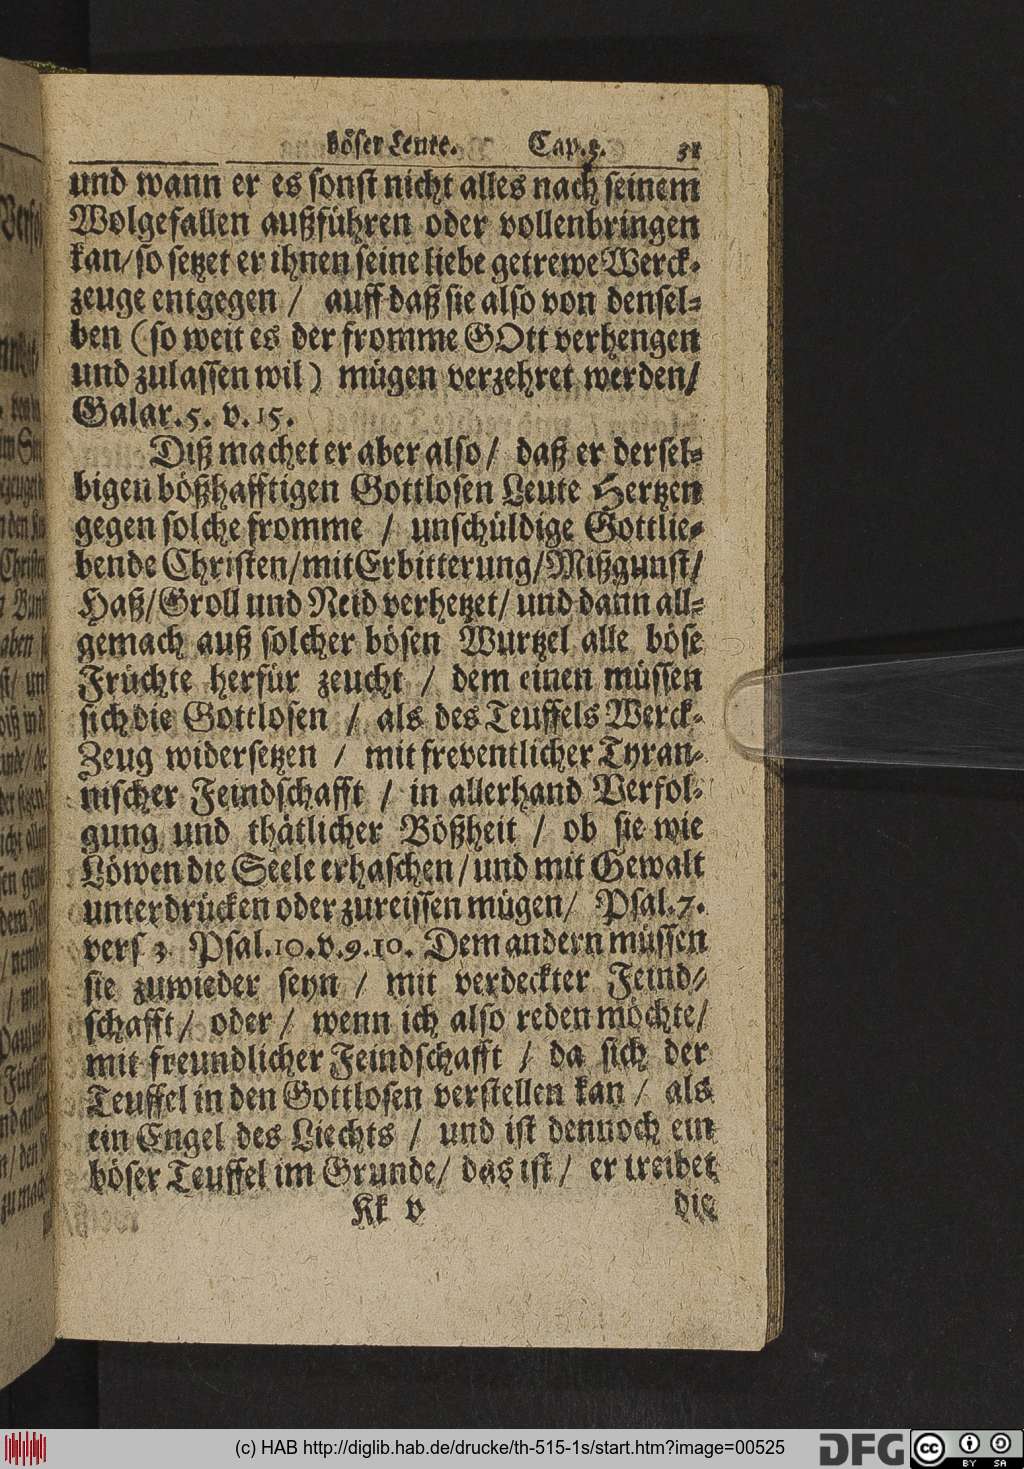 böser Leute. Cap. 3. 31
und wann er es sonst nicht alles nach seinem
Wolgefallen außführen oder vollenbringen
kan/ so setzet er ihnen seine liebe getrewe Werck-
zeuge entgegen / auff daß sie also von densel-
ben (so weit es der fromme GOtt verhengen
und zulassen wil) mügen verzehret werden/
Galat. 5. v. 15.
Diß machet er aber also / daß er dersel-
bigen bößhafftigen Gottlosen Leute Hertzen
gegen solche fromme / unschüldige Gottlie-
bende Christen/ mit Erbitterung/ Mißgunst/
Haß/ Groll und Neid verhetzet/ und dann all-
gemach auß solcher bösen Wurtzel alle böse
Früchte herfür zeucht / dem einen müssen
sich die Gottlosen / als des Teuffels Werck-
Zeug widersetzen / mit freventlicher Tyran-
nischer Feindschafft / in allerhand Verfol-
gung und thätlicher Bößheit / ob sie wie
Löwen die Seele erhaschen/ und mit Gewalt
unterdrücken oder zureissen mügen/ Psal. 7.
vers 3. Psal. 10. v. 9. 10. Dem andern müssen
sie zuwieder seyn / mit verdeckter Feind-
schafft/ oder/ wenn ich also reden möchte/
mit freundlicher Feindschafft / da sich der
Teuffel in den Gottlosen verstellen kan / als
ein Engel des Liechts / und ist dennoch ein
böser Teuffel im Grunde/ das ist/ er treibet
Kk v die
(c) HAB http://diglib.hab.de/drucke/th-515-1s/start.htm?image=00525
DFG
cc BY SA